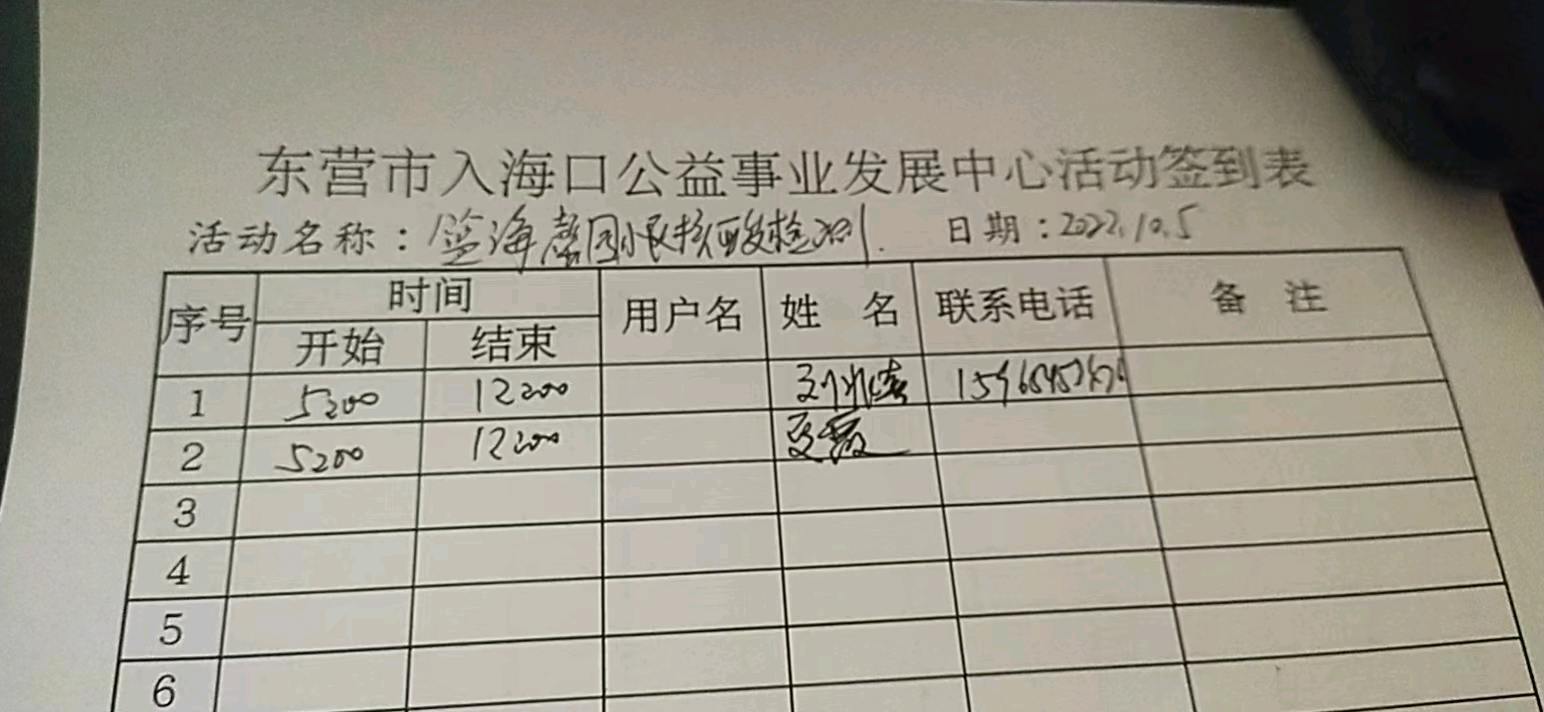 东营市入海口公益事业发展中心活动签到表
活动名称：蓝海馨园小区核酸检测. 日期：2022.10.5
序号 时间 用户名 姓 名 联系电话 备 注
开始 结束
1 5:00 12:00
2 5:00 12:00
3
4
5
6